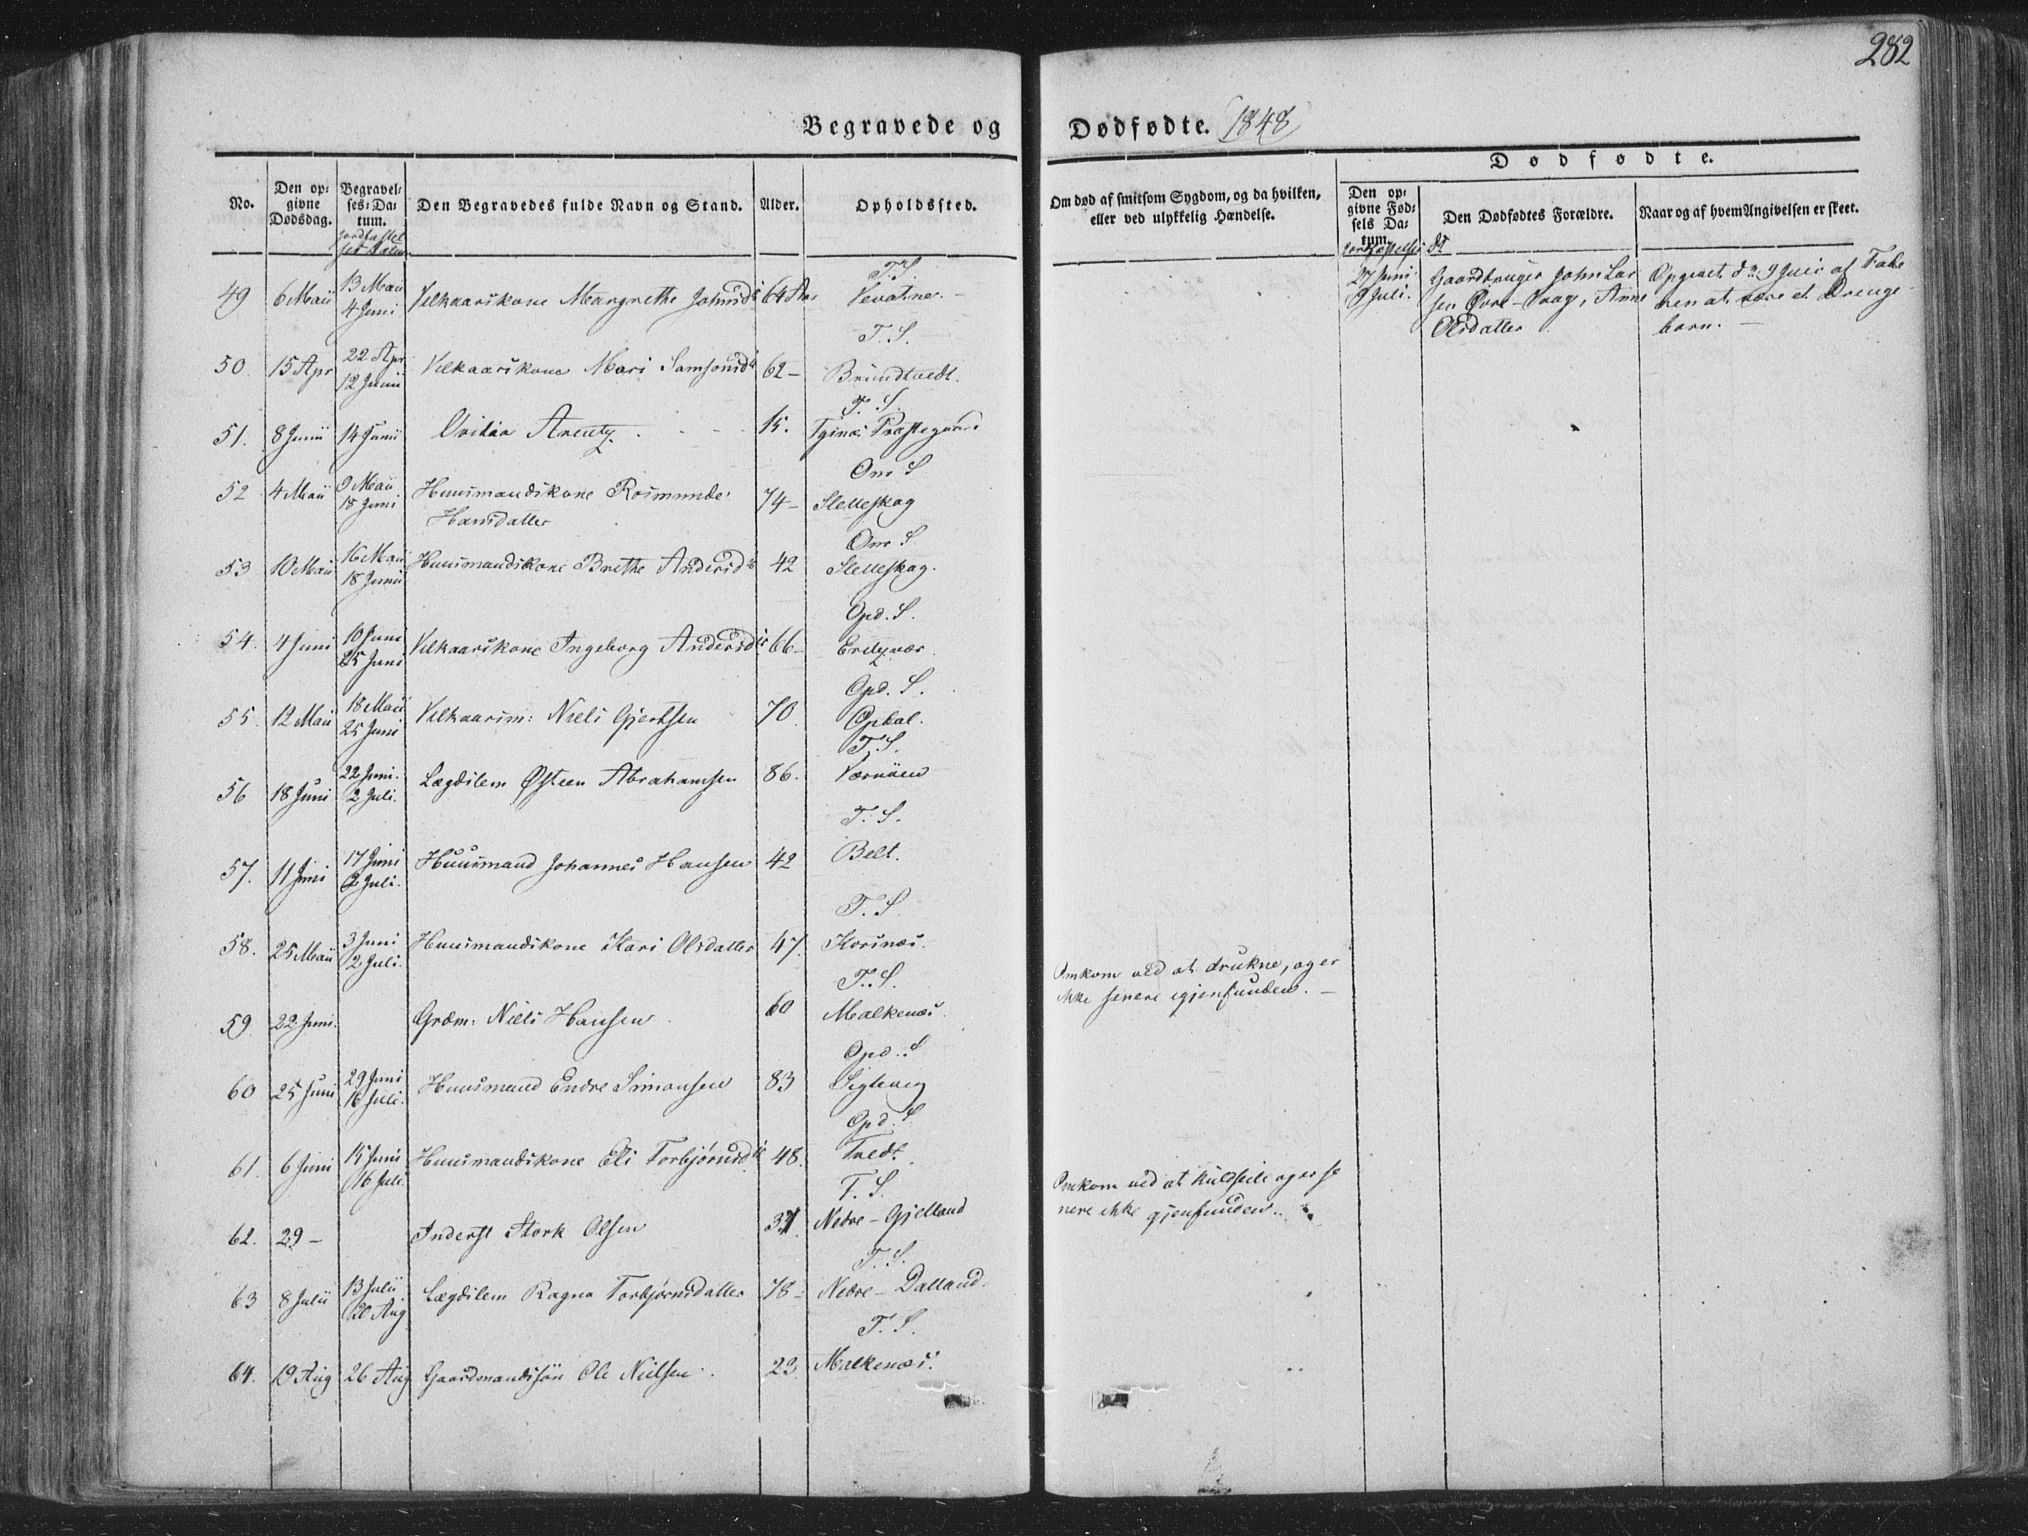 282
Begravede og Dødfødte. 1848
Dødfødte.
No.
Den opgivne Dødsdag.
Begravelses-Datum.
Den Begravedes fulde Navn og Stand.
Alder.
Opholdssted.
Om død af smitsom Sygdom, og da hvilken, eller ved ulykkelig Hændelse.
Den opgivne Fødsels Datum.
Den Dødfødtes Forældre.
Naar og af hvem Angivelsen er skeet.
T. S.
49 6 Maii 13 Maii 4 Juni Vilkaarskone Margrethe Johnsdr 64 Aar
T. S.
50. 15 Apr 22 Apr 12 Junii Vilkaarskone Mari Samsonsdr 62 – Brundtvedt.
T. S.
51. 8 Junii 14 Junii Arentz. 15. Præstegaard
Onr S
52 4 Maii 9 Maii 18 Juni Huusmandskone Rosmunde Hansdatter 74 – Slelleskog
Onr S
53 10 Maii 16 Maii 18 Junii Huusmandskone Brethe Andersdr 42 Slelleskog.
Opd. S.
54. 4 Juni 10 Juni 25 Juni Vilkaarskone Ingeborg Andersdtr 66 –
Opd. S.
55. 12 Maii 18 Maii 25 Juni Vilkaarsm: Niels Gjertsen 70. Opdal.
T. S.
56 18 Juni 22 Juni. 2 Juli. Lægdslem Østen Abrahamsen 86. Værnöen
T. S.
57. 11 Juni 17 Juni 2 Juli. Huusmand Johannes Hansen 42 Belt.
T. S.
58. 25 Maii 3 Juni 2 Juli. Huusmandskone Kari Olsdatter 47. Korsnæs.
T. S.
59. 22 Juni. Grdm: Niels Hansen 60 Malkenæs.
Omkom ved at drukne, og er
ikke senere igjenfunden. –
Opd. S
60 25 Juni 29 Juni 16 Juli. Huusmand Endre Simonsen 83 Siglevig
Opd. S
61. 6 Juni 15 Juni 16 Juli. Huusmandskone Eli Torbjørnsdtr 48. Tvedt.
T. S.
62. 29 – Inderst Stork Olsen Nedre – Gjelland
Omkom ved at kuldseile og er se
nere ikke gjenfunden.
T. S.
63 8 Julii 13 Julii 20 Aug Lægdslem Ragna Torbjørnsdatter 78 – Nedre – Dalland.
T. S.
64. 19 Aug 26 Aug Gaardmandssön Ole Nielsen. 23. Malkenæs.
27 Juni
9 Juli.
Gaardbruger John Lar
sen Øvre – Vaag, Anne
Olsdatter
Opgivet d. 9 Juli af Fade
ren at være et Drenge
barn. –